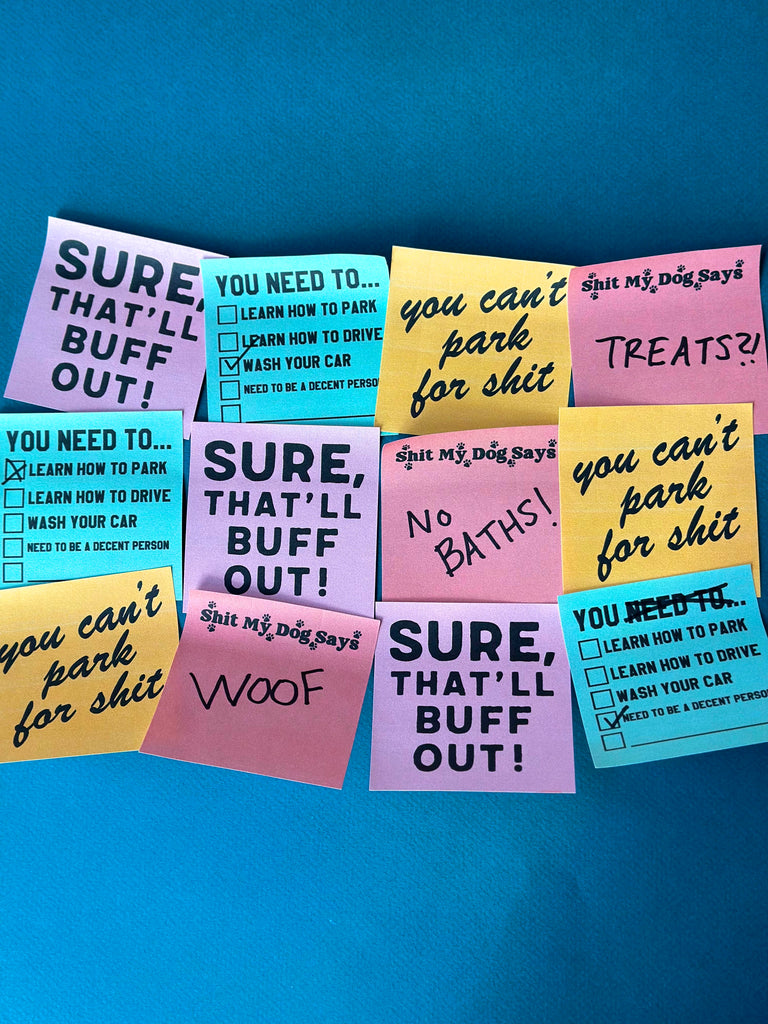 SURE,
THAT'LL
BUFF
OUT!
YOU NEED TO...
LEARN HOW TO PARK
LEARN HOW TO DRIVE
WASH YOUR CAR
NEED TO BE A DECENT PERSON
you can't
park
for shit
Shit My Dog Says
TREATS?!
YOU NEED TO...
LEARN HOW TO PARK
LEARN HOW TO DRIVE
WASH YOUR CAR
NEED TO BE A DECENT PERSON
SURE,
THAT'LL
BUFF
OUT!
Shit My Dog Says
NO
BATHS!
you can't
park
for shit
you can't
park
for shit
Shit My Dog Says
WOOF
SURE,
THAT'LL
BUFF
OUT!
YOU NEED TO...
LEARN HOW TO PARK
LEARN HOW TO DRIVE
WASH YOUR CAR
NEED TO BE A DECENT PERSON